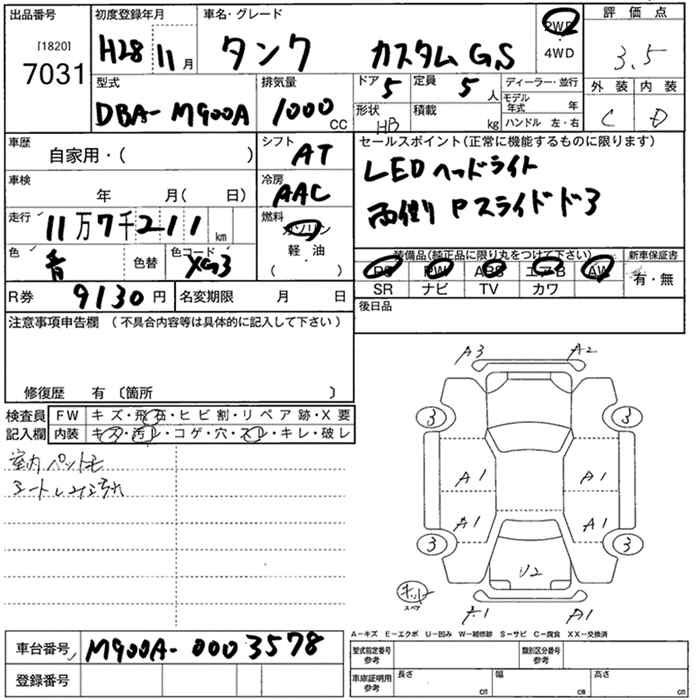 出品番号 初度登録年月 車名・グレード 2WD ・ 4WD 評価点
[1820]
7031 H28 11月 タンク カスタム GS 3.5
型式 排気量 ドア 5 定員 5人 ディーラー・並行 外装 内装
DBA-M900A 1000 CC 形状 HB 積載 kg モデル年式 年 C D
ハンドル 左・右
車歴 自家用・( ) シフト AT セールスポイント(正常に機能するものに限ります)
車検 年 月( 日) 冷房 AAC LEDヘッドライト
走行 11万7千211 km 燃料 ガソリン・軽油・( ) 両側Pスライドドア
色 青 色替 色コード XG3 装備品(純正品に限り丸をつけて下さい) 新車保証書
PS PW ABS エアB AW 有・無
R券 9130円 名変期限 月 日 SR ナビ TV カワ
注意事項申告欄 (不具合内容等は具体的に記入して下さい) 後日品
修復歴 有 〔箇所 〕
検査員 FW キズ・飛石・ヒビ割・リペア跡・X要
記入欄 内装 キズ・汚レ・コゲ・穴・スレ・キレ・破レ
室内ペット毛
シートしみ汚れ
A3 A2
3 3
A1 A1
A1 A1
3 3
U2
キット
スペア
A1
A-キズ E-エクボ U-凹み W-補修跡 S-サビ C-腐食 XX-交換済
車台番号 M900A-0003578 型式指定番号 参考 類別区分番号 参考
登録番号 車庫証明用 参考 長さ cm 幅 cm 高さ cm